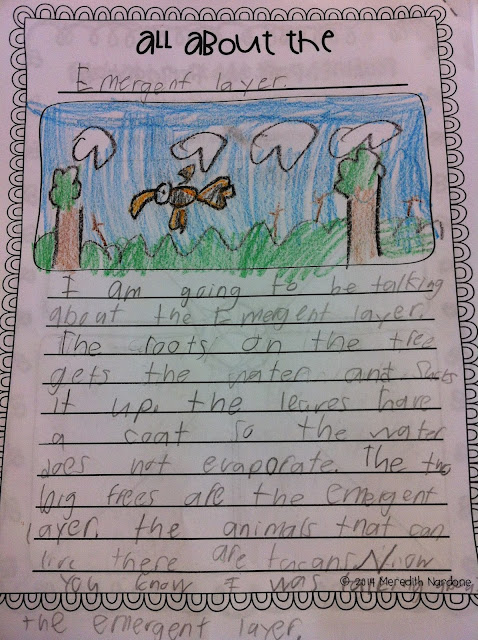 all about the
Emergent layer.
I am going to be talking
about the Emergent layer.
The roots on the tree
gets the water and sucks
it up. the leaves have
a coat so the water
does not evaporate. The two
big trees are the emergent
layer. the animals that can
live there are tucans. Now
you know I was
© 2014 Meredith Nardone
the emergent layer.